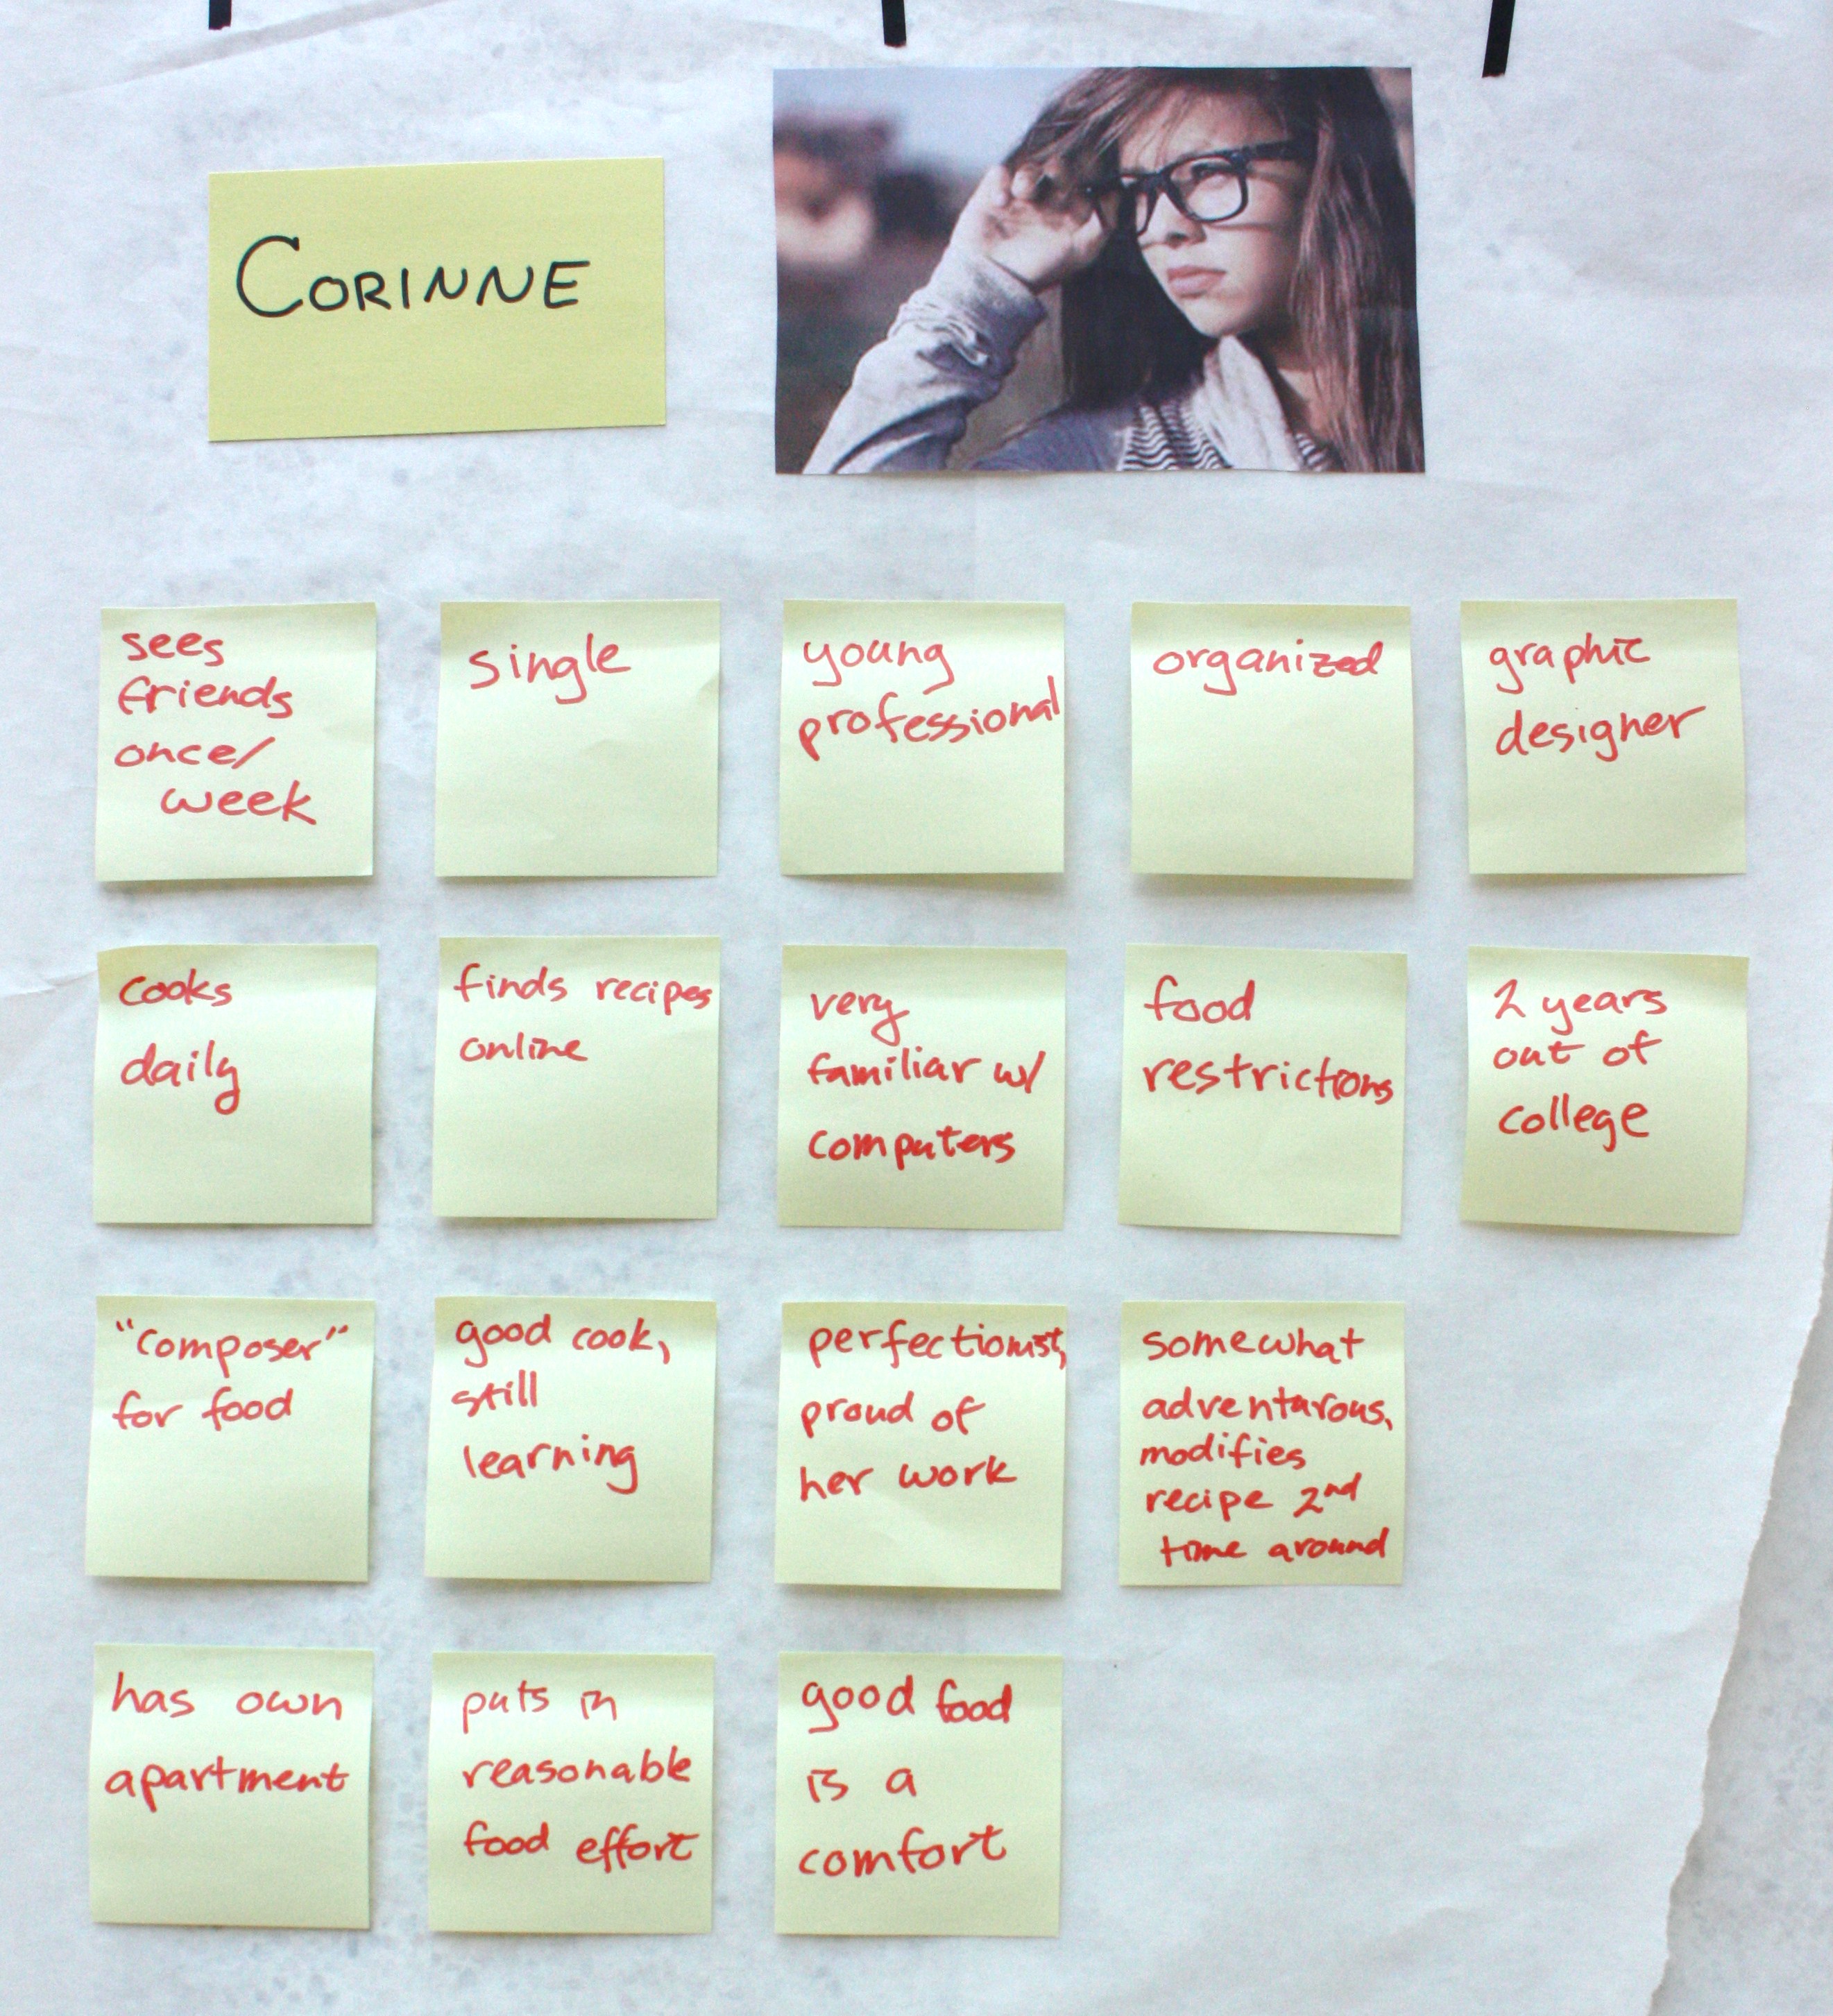 CORINNE
sees
friends
once/
week
single
young
professional
organized
graphic
designer
cooks
daily
finds recipes
online
very
familiar w/
computers
food
restrictions
2 years
out of
college
"composer"
for food
good cook,
still
learning
perfectionist,
proud of
her work
somewhat
adventarous,
modifies
recipe 2nd
time around
has own
apartment
puts in
reasonable
food effort
good food
is a
comfort